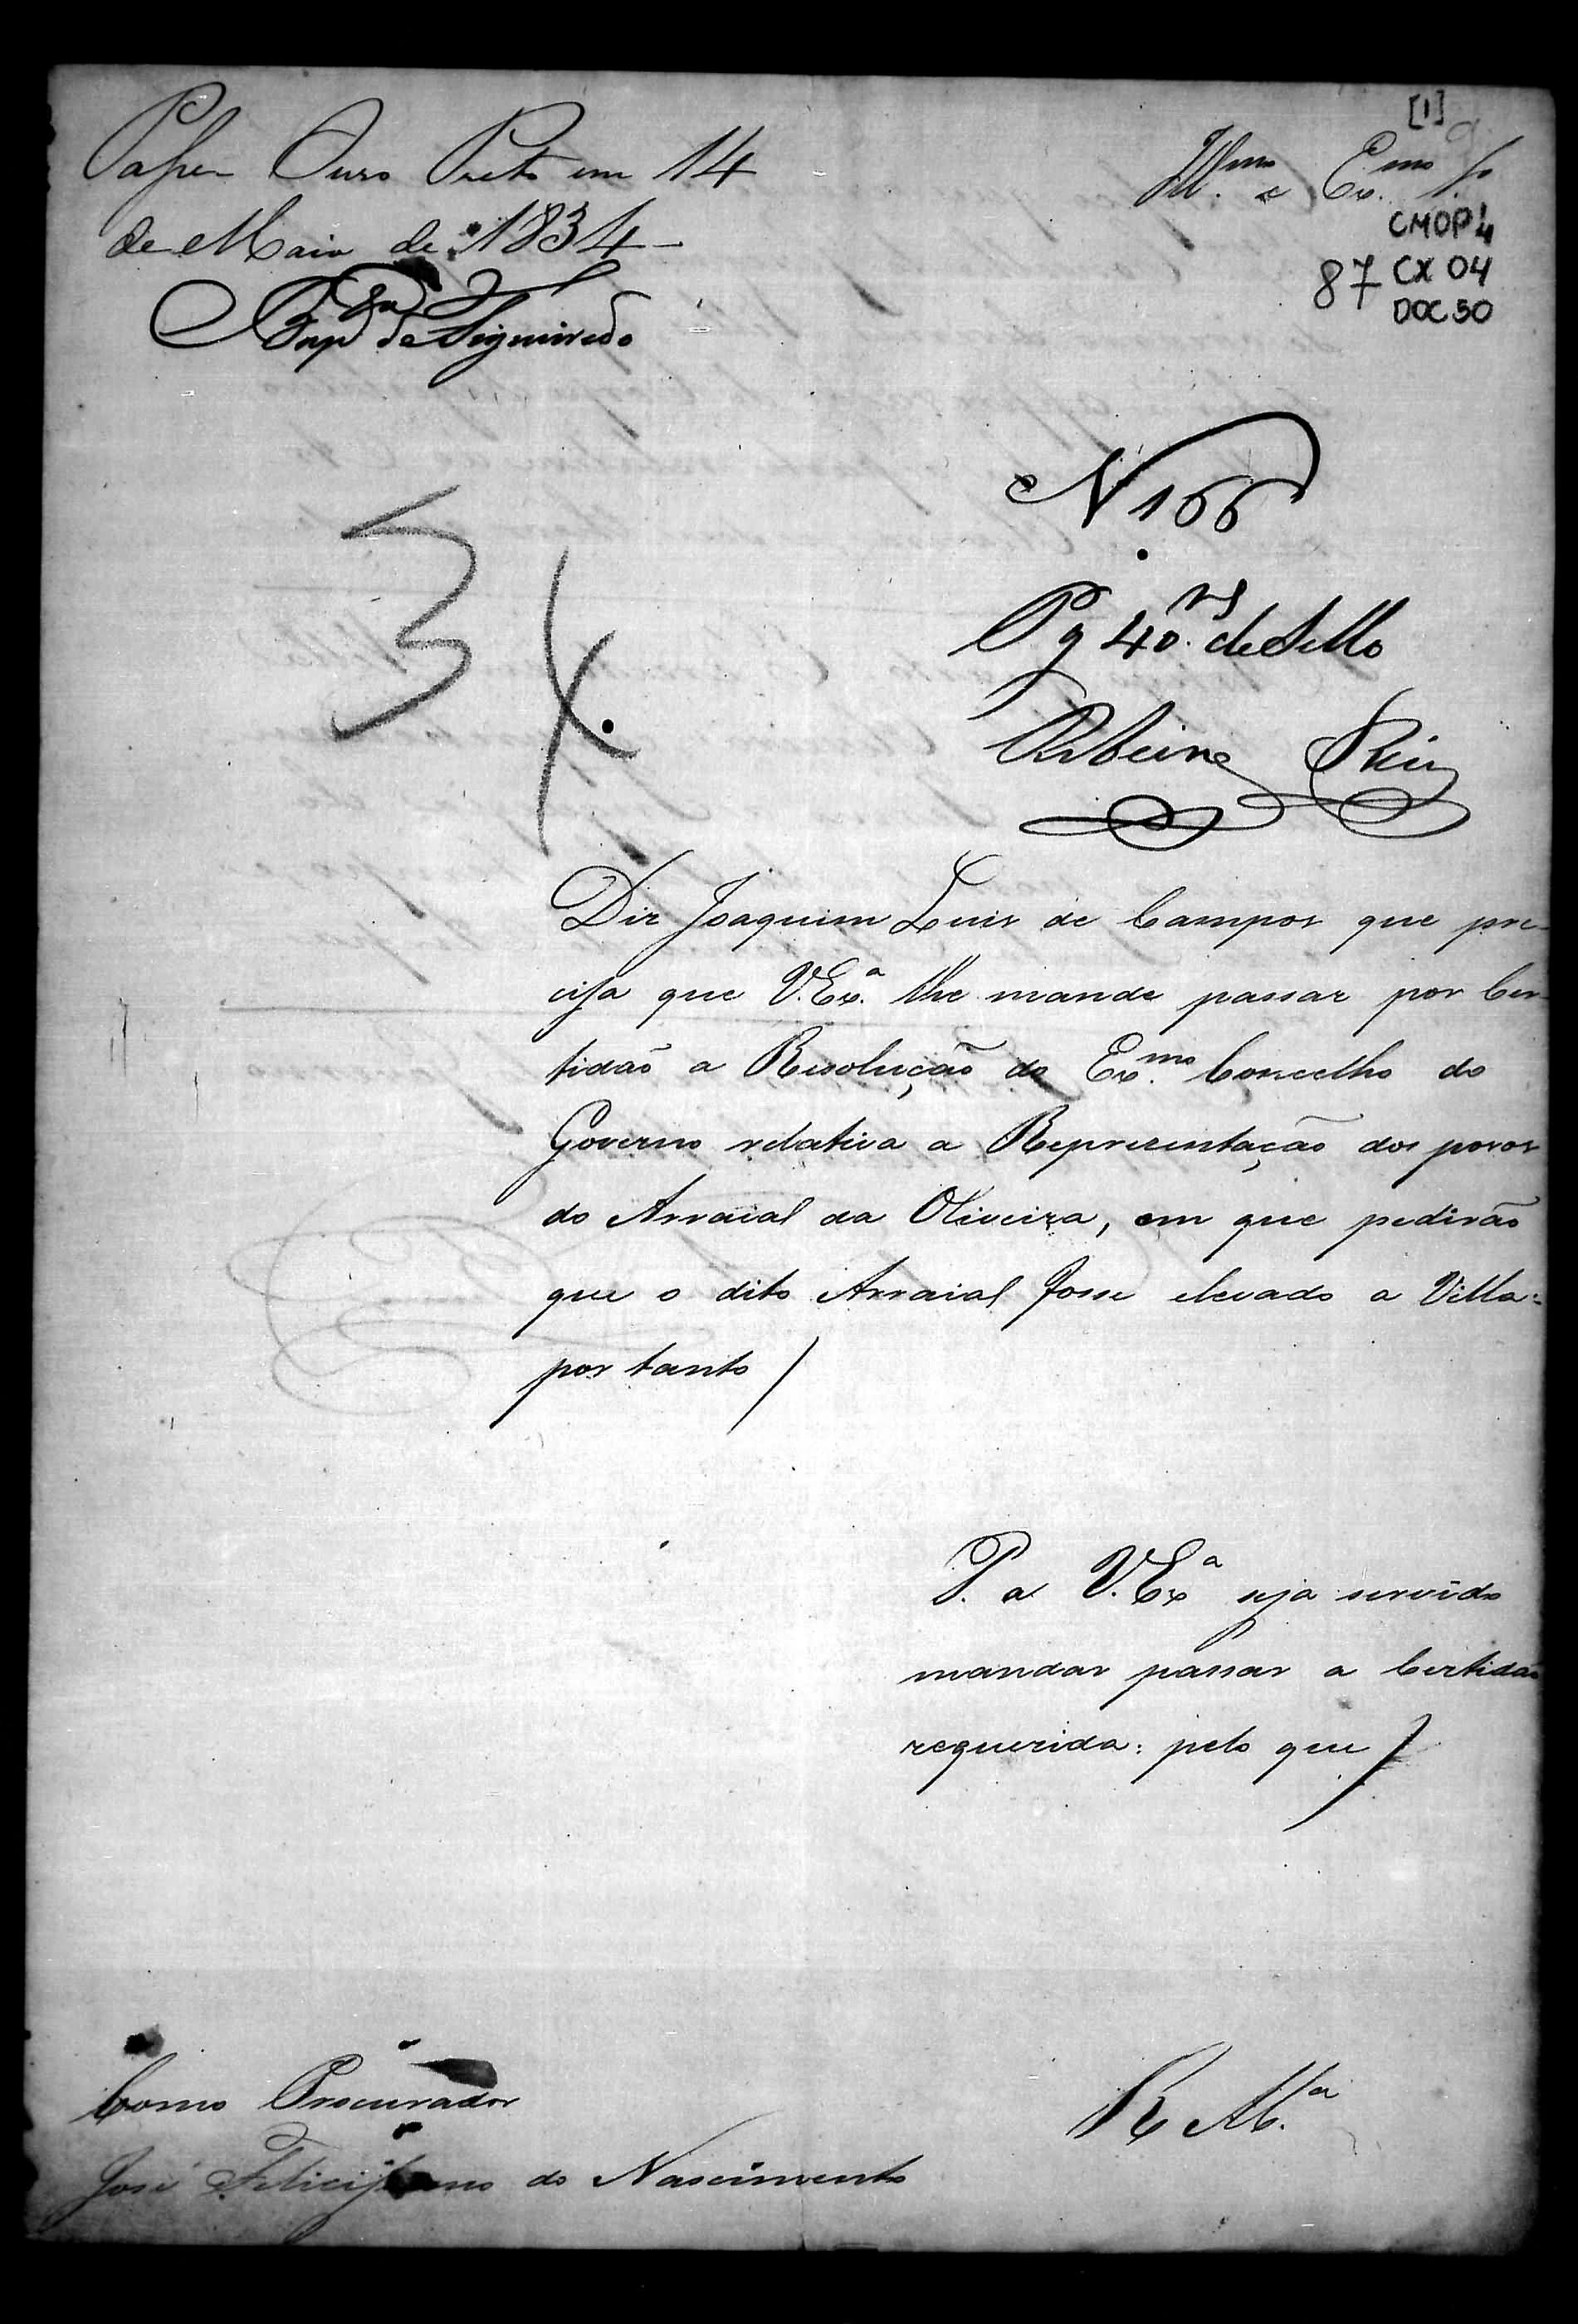 [1]
Passe Ouro Preto em 14
de Maio de 1834
Bapta de Figueiredo
Illmo e Exmo Sr
CMOP 4
87 CX 04
DOC 50
N 166
Pg 40 rs de Sello
Ribeiro
3
Diz Joaquim Luis de Campos que pre-
cisa que V. Exa. lhe mande passar por Cer-
tidaõ a Resoluçaõ do Exmo. Concelho do
Governo relativa a Reprezentaçaõ dos povos
do Arraial da Oliveira, em que pediraõ
que o dito Arraial fosse elevado a Villa:
por tanto /
P. a V. Exa seja servido
mandar passar a Certidaõ
requerida: pelo que /
R Mca.
Como Procurador
José Feliciano do Nascimento